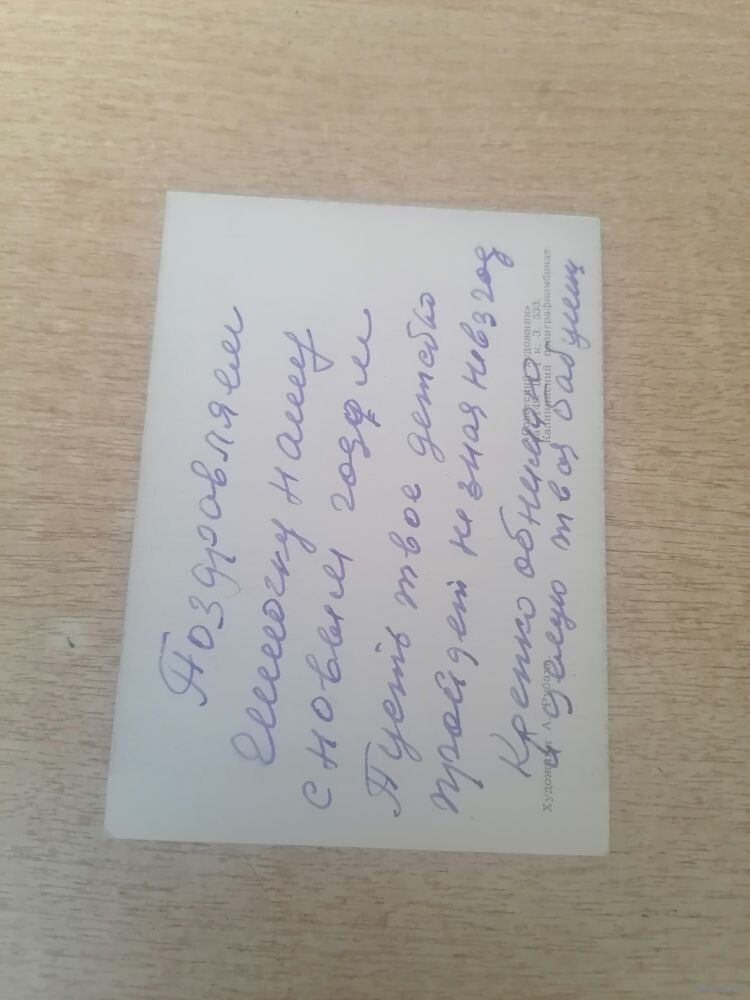 Поздравляем
нашу
с новым годом
Пусть твое детство
пройдет не зная невзгод
Крепко обнимаю
и целую твоя бабушка
Художник А.
«Советский художник»
З. 533.
Калининский полиграфкомбинат